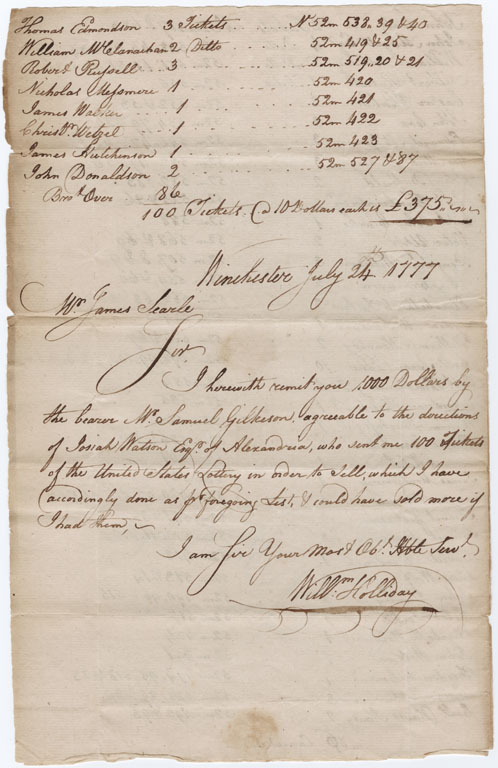 Thomas Edmondson 3 Tickets ... No 52m 538, 39 & 40
William McClanachan 2 Ditto ... 52m 419 & 25
Robert Russell 3 ... 52m 519, 20 & 21
Nicholas Messmere 1 ... 52m 420
James Walker 1 ... 52m 421
Christr. Wetzel 1 ... 52m 422
James Hutchinson 1 ... 52m 423
John Donaldson 2 ... 52m 527 & 87
Brot. Over 86
100 Tickets @ 10 Dollars each is £375
Winchester July 24th 1777
Mr. James Searle
Sir
I herewith remit you 1000 Dollars by
the bearer Mr. Samuel Gilkeson, agreeable to the directions
of Josiah Watson Esqr. of Alexandria, who sent me 100 Tickets
of the United States Lottery in order to Sell, which I have
accordingly done as pr. foregoing List, & could have sold more if
I had them,
I am Sir Your Most Obt. Hble Servt.
Willm. Holliday